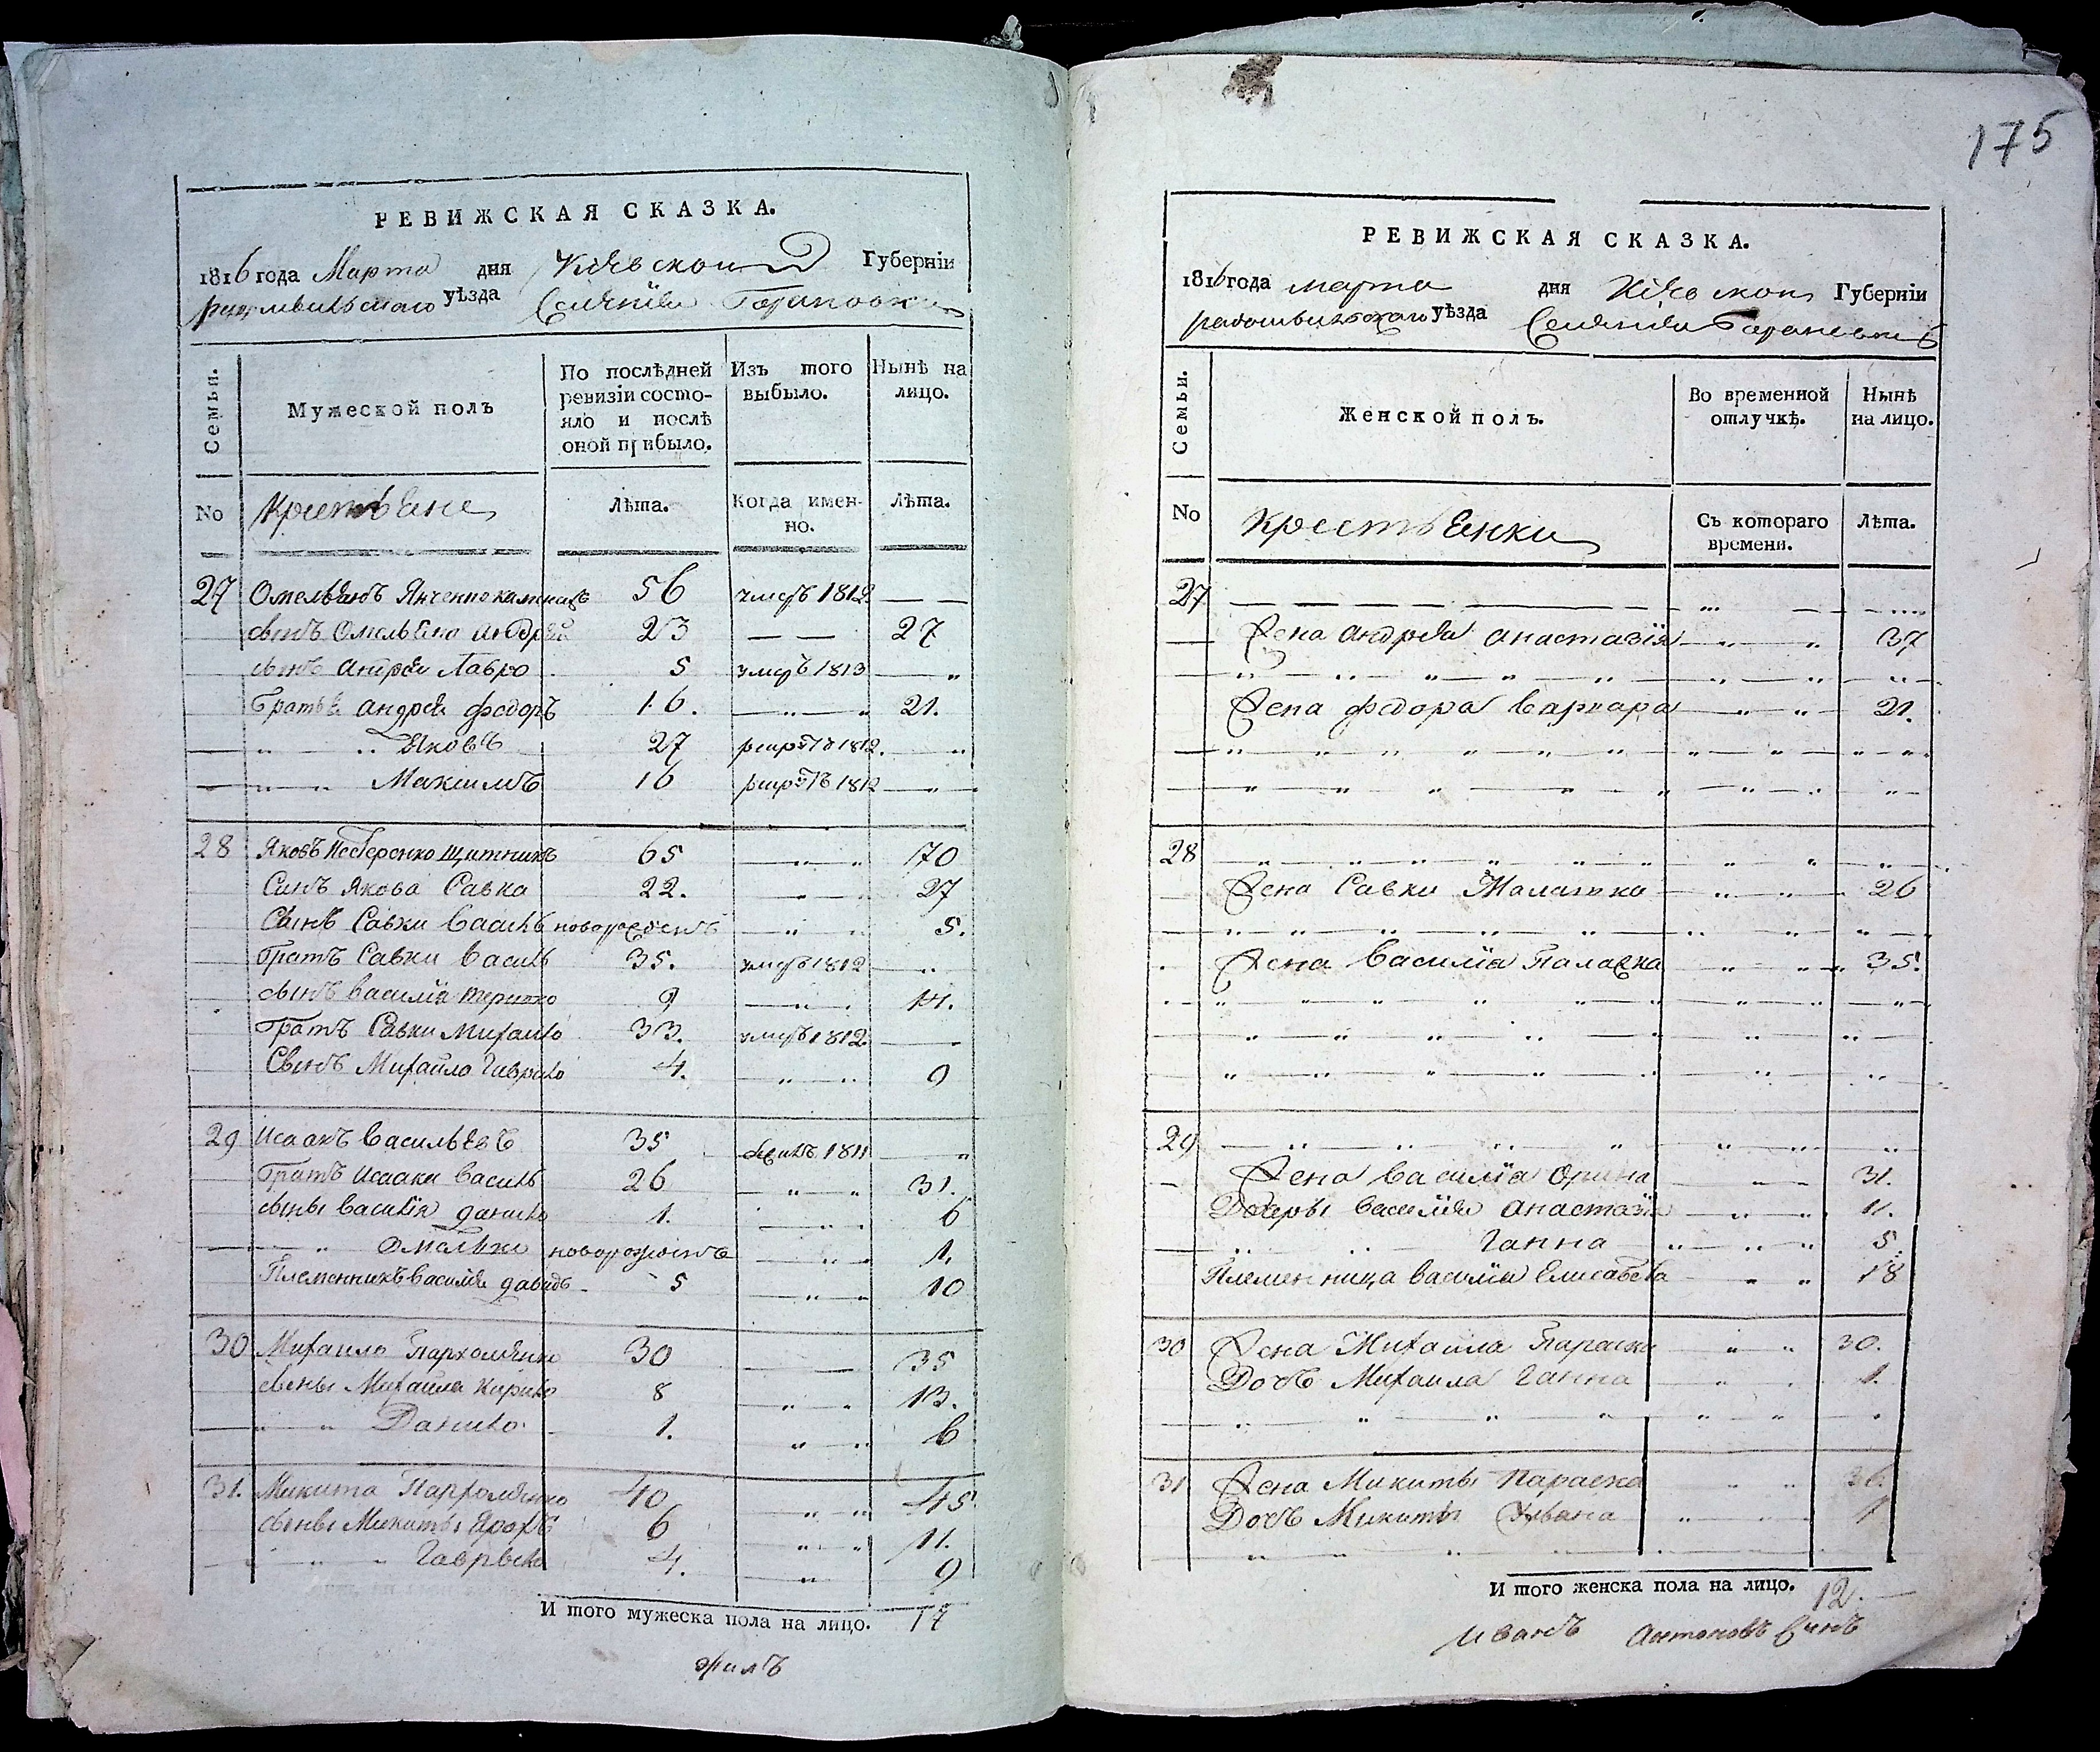 РЕВИЖСКАЯ СКАЗКА.
1816 года Марта дня Кіевской Губерніи
уѣзда Селенія
Семьи.
Мужеской полъ
По послѣдней ревизіи состояло и послѣ оной прибыло.
Изъ того выбыло.
Нынѣ на лицо.
No
Лѣта.
Когда именно.
Лѣта.
27 56 умеръ 1812 — —
сынъ Омельяна Андрей 23 — — 27
сынъ Андрея Лавро 5 умеръ 1813 — „
Братья Андрея Федоръ 16. — „ — „ 21.
— „ — „ Яковъ 27 1812. „
— „ — „ Максимъ 16 1812 — „ —
28 Яковъ Нестеренко 65 — „ — „ 70
Синъ Якова Савка 22. — „ — „ 27
Сынъ Савки Василь новорожденъ — „ „ 5.
Братъ Савки Василь 35. умеръ 1812 — „
сынъ Василія 9 — „ — . 14.
Братъ Савки Михайло 33. умеръ 1812. —
Сынъ Михайла Гаврило 4. „ — „ 9
29 Исаакъ Васильевъ 35 1811 — „
Братъ Исаака Василь 26 — „ — „ 31.
сыны Василія Данило 1. — „ „ 6
— — „ Омелько новорожденъ — „ „ 1.
Племенникъ Василія Давидъ 5 — „ — „ 10
30 Михайло Пархоменко 30 — — 35
сыны Михайла Кирило 8 „ — „ 13.
— „ — „ Данило 1. „ — „ 6
31. Микита Пархоменко 40 „ — „ 45
сыны Микиты 6 „ — „ 11.
— „ — „ Гаврыло 4. — „ 9
И того мужеска пола на лицо. 17
жилъ
175
РЕВИЖСКАЯ СКАЗКА.
1816 года марта дня Кіевской Губерніи
уѣзда Селенія
Семьи.
Женской полъ.
Во временной отлучкѣ.
Нынѣ на лицо.
No
Крестьянки
Съ котораго времени.
Лѣта.
27
Жена Андрея Анастазія — „ „ 37
Жена Федора Варвара — „ „ — 21.
28
Жена Савки Малашка — „ „ — 26
Жена Василія Палажка „ „ — 35.
29
Жена Василія Орина „ — „ 31.
Дочеры Василія Анастазія — „ — „ 11.
„ „ Ганна „ — „ „ 5.
Племенница Василія Елисавета — „ „ 18
30 Жена Михайла Параска „ „ 30.
Дочъ Михайла Ганна — „ „ 1.
31 Жена Микиты Параска „ „ 36.
Дочъ Микиты „ — 1
И того женска пола на лицо. 12.
Иванъ Антоновъ сынъ